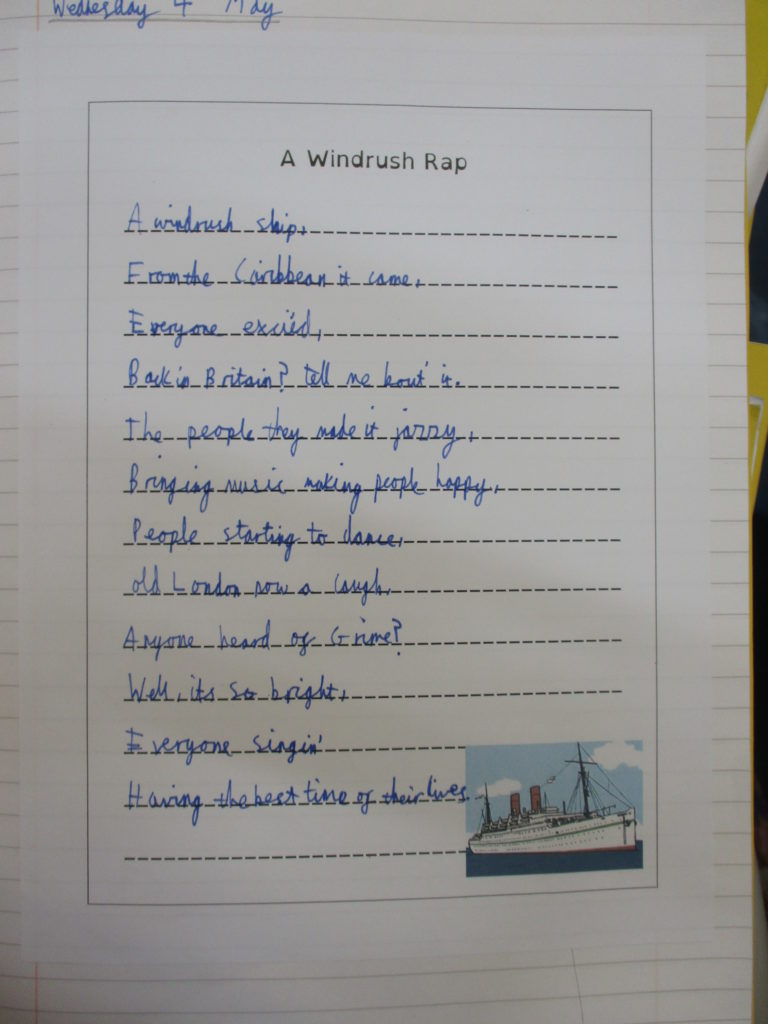 Wednesday 4 May
A Windrush Rap
A windrush ship,
From the Caribbean it came,
Everyone excited,
Back in Britain? tell me bout' it.
The people they made it jazzy,
Bringing music making people happy,
People starting to dance,
old London now a laugh,
Anyone heard of Grime?
Well, its so bright,
Everyone singin'
Having the best time of their lives